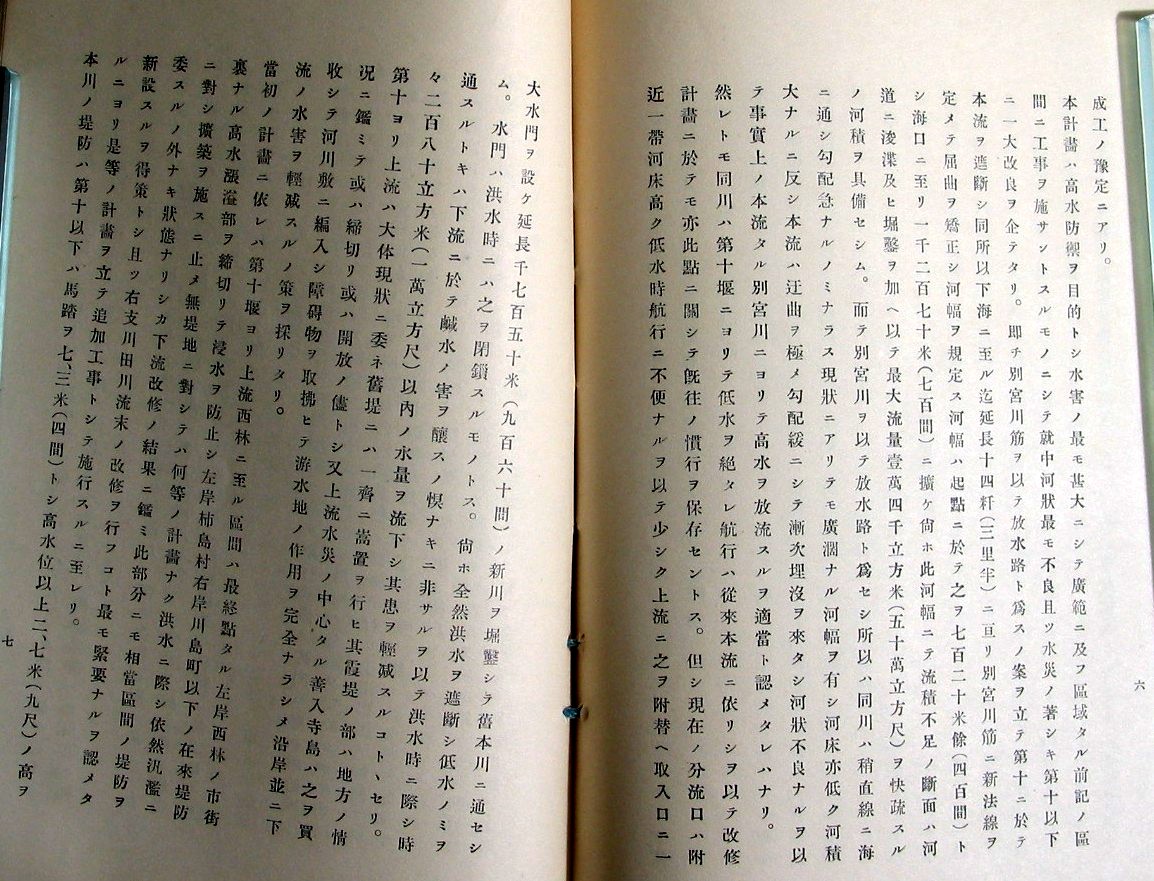 成工ノ豫定ニアリ。
本計畫ハ高水防禦ヲ目的トシ水害ノ最モ甚大ニシテ廣範ニ及フ區域タル前記ノ區
間ニ工事ヲ施サントスルモノニシテ就中河狀最モ不良且ツ水災ノ著シキ第十以下
ニ一大改良ヲ企テタリ。卽チ別宮川筋ヲ以テ放水路ト爲スノ案ヲ立テ第十ニ於テ
本流ヲ遮斷シ同所以下海ニ至ル迄延長十四粁(三里半)ニ亘リ別宮川筋ニ新法線ヲ
定メテ屈曲ヲ矯正シ河幅ヲ規定ス河幅ハ起點ニ於テ之ヲ七百二十米餘(四百間)ト
シ海口ニ至リ一千二百七十米(七百間)ニ擴ケ尙ホ此河幅ニテ流積不足ノ斷面ハ河
道ニ浚渫及ヒ堀鑿ヲ加ヘ以テ最大流量壹萬四千立方米(五十萬立方尺)ヲ快疏スル
ノ河積ヲ具備セシム。而テ別宮川ヲ以テ放水路ト爲セシ所以ハ同川ハ稍直線ニ海
ニ通シ勾配急ナルノミナラス現狀ニアリテモ廣濶ナル河幅ヲ有シ河床亦低ク河積
大ナルニ反シ本流ハ迂曲ヲ極メ勾配緩ニシテ漸次埋沒ヲ來タシ河狀不良ナルヲ以
テ事實上ノ本流タル別宮川ニヨリテ高水ヲ放流スルヲ適當ト認メタレハナリ。
然レトモ同川ハ第十堰ニヨリテ低水ヲ絕タレ航行ハ從來本流ニ依リシヲ以テ改修
計畫ニ於テモ亦此點ニ關シテ旣往ノ慣行ヲ保存セントス。但シ現在ノ分流口ハ附
近一帶河床高ク低水時航行ニ不便ナルヲ以テ少シク上流ニ之ヲ附替ヘ取入口ニ一
六
大水門ヲ設ケ延長千七百五十米(九百六十間)ノ新川ヲ堀鑿シテ舊本川ニ通セシ
ム。水門ハ洪水時ニハ之ヲ閉鎖スルモノトス。尙ホ全然洪水ヲ遮斷シ低水ノミヲ
通スルトキハ下流ニ於テ鹹水ノ害ヲ釀スノ惧ナキニ非サルヲ以テ洪水時ニ際シ時
々二百八十立方米(一萬立方尺)以內ノ水量ヲ流下シ其患ヲ輕減スルコトヽセリ。
第十ヨリ上流ハ大体現狀ニ委ネ舊堤ニハ一齊ニ嵩置ヲ行ヒ其霞堤ノ部ハ地方ノ情
況ニ鑑ミテ或ハ締切リ或ハ開放ノ儘トシ又上流水災ノ中心タル善入寺島ハ之ヲ買
收シテ河川敷ニ編入シ障碍物ヲ取拂ヒテ游水地ノ作用ヲ完全ナラシメ沿岸並ニ下
流ノ水害ヲ輕減スルノ策ヲ採リタリ。
當初ノ計畫ニ依レハ第十堰ヨリ上流西林ニ至ル區間ハ最終點タル左岸西林ノ市街
裏ナル高水漲溢部ヲ締切リテ浸水ヲ防止シ左岸柿島村右岸川島町以下ノ在來堤防
ニ對シ擴築ヲ施スニ止メ無堤地ニ對シテハ何等ノ計畫ナク洪水ニ際シ依然汎濫ニ
委スルノ外ナキ狀態ナリシカ下流改修ノ結果ニ鑑ミ此部分ニモ相當區間ノ堤防ヲ
新設スルヲ得策トシ且ツ右支川田川流末ノ改修ヲ行フコト最モ緊要ナルヲ認メタ
ルニヨリ是等ノ計畫ヲ立テ追加工事トシテ施行スルニ至レリ。
本川ノ堤防ハ第十以下ハ馬踏ヲ七、三米(四間)トシ高水位以上二、七米(九尺)ノ高ヲ
七